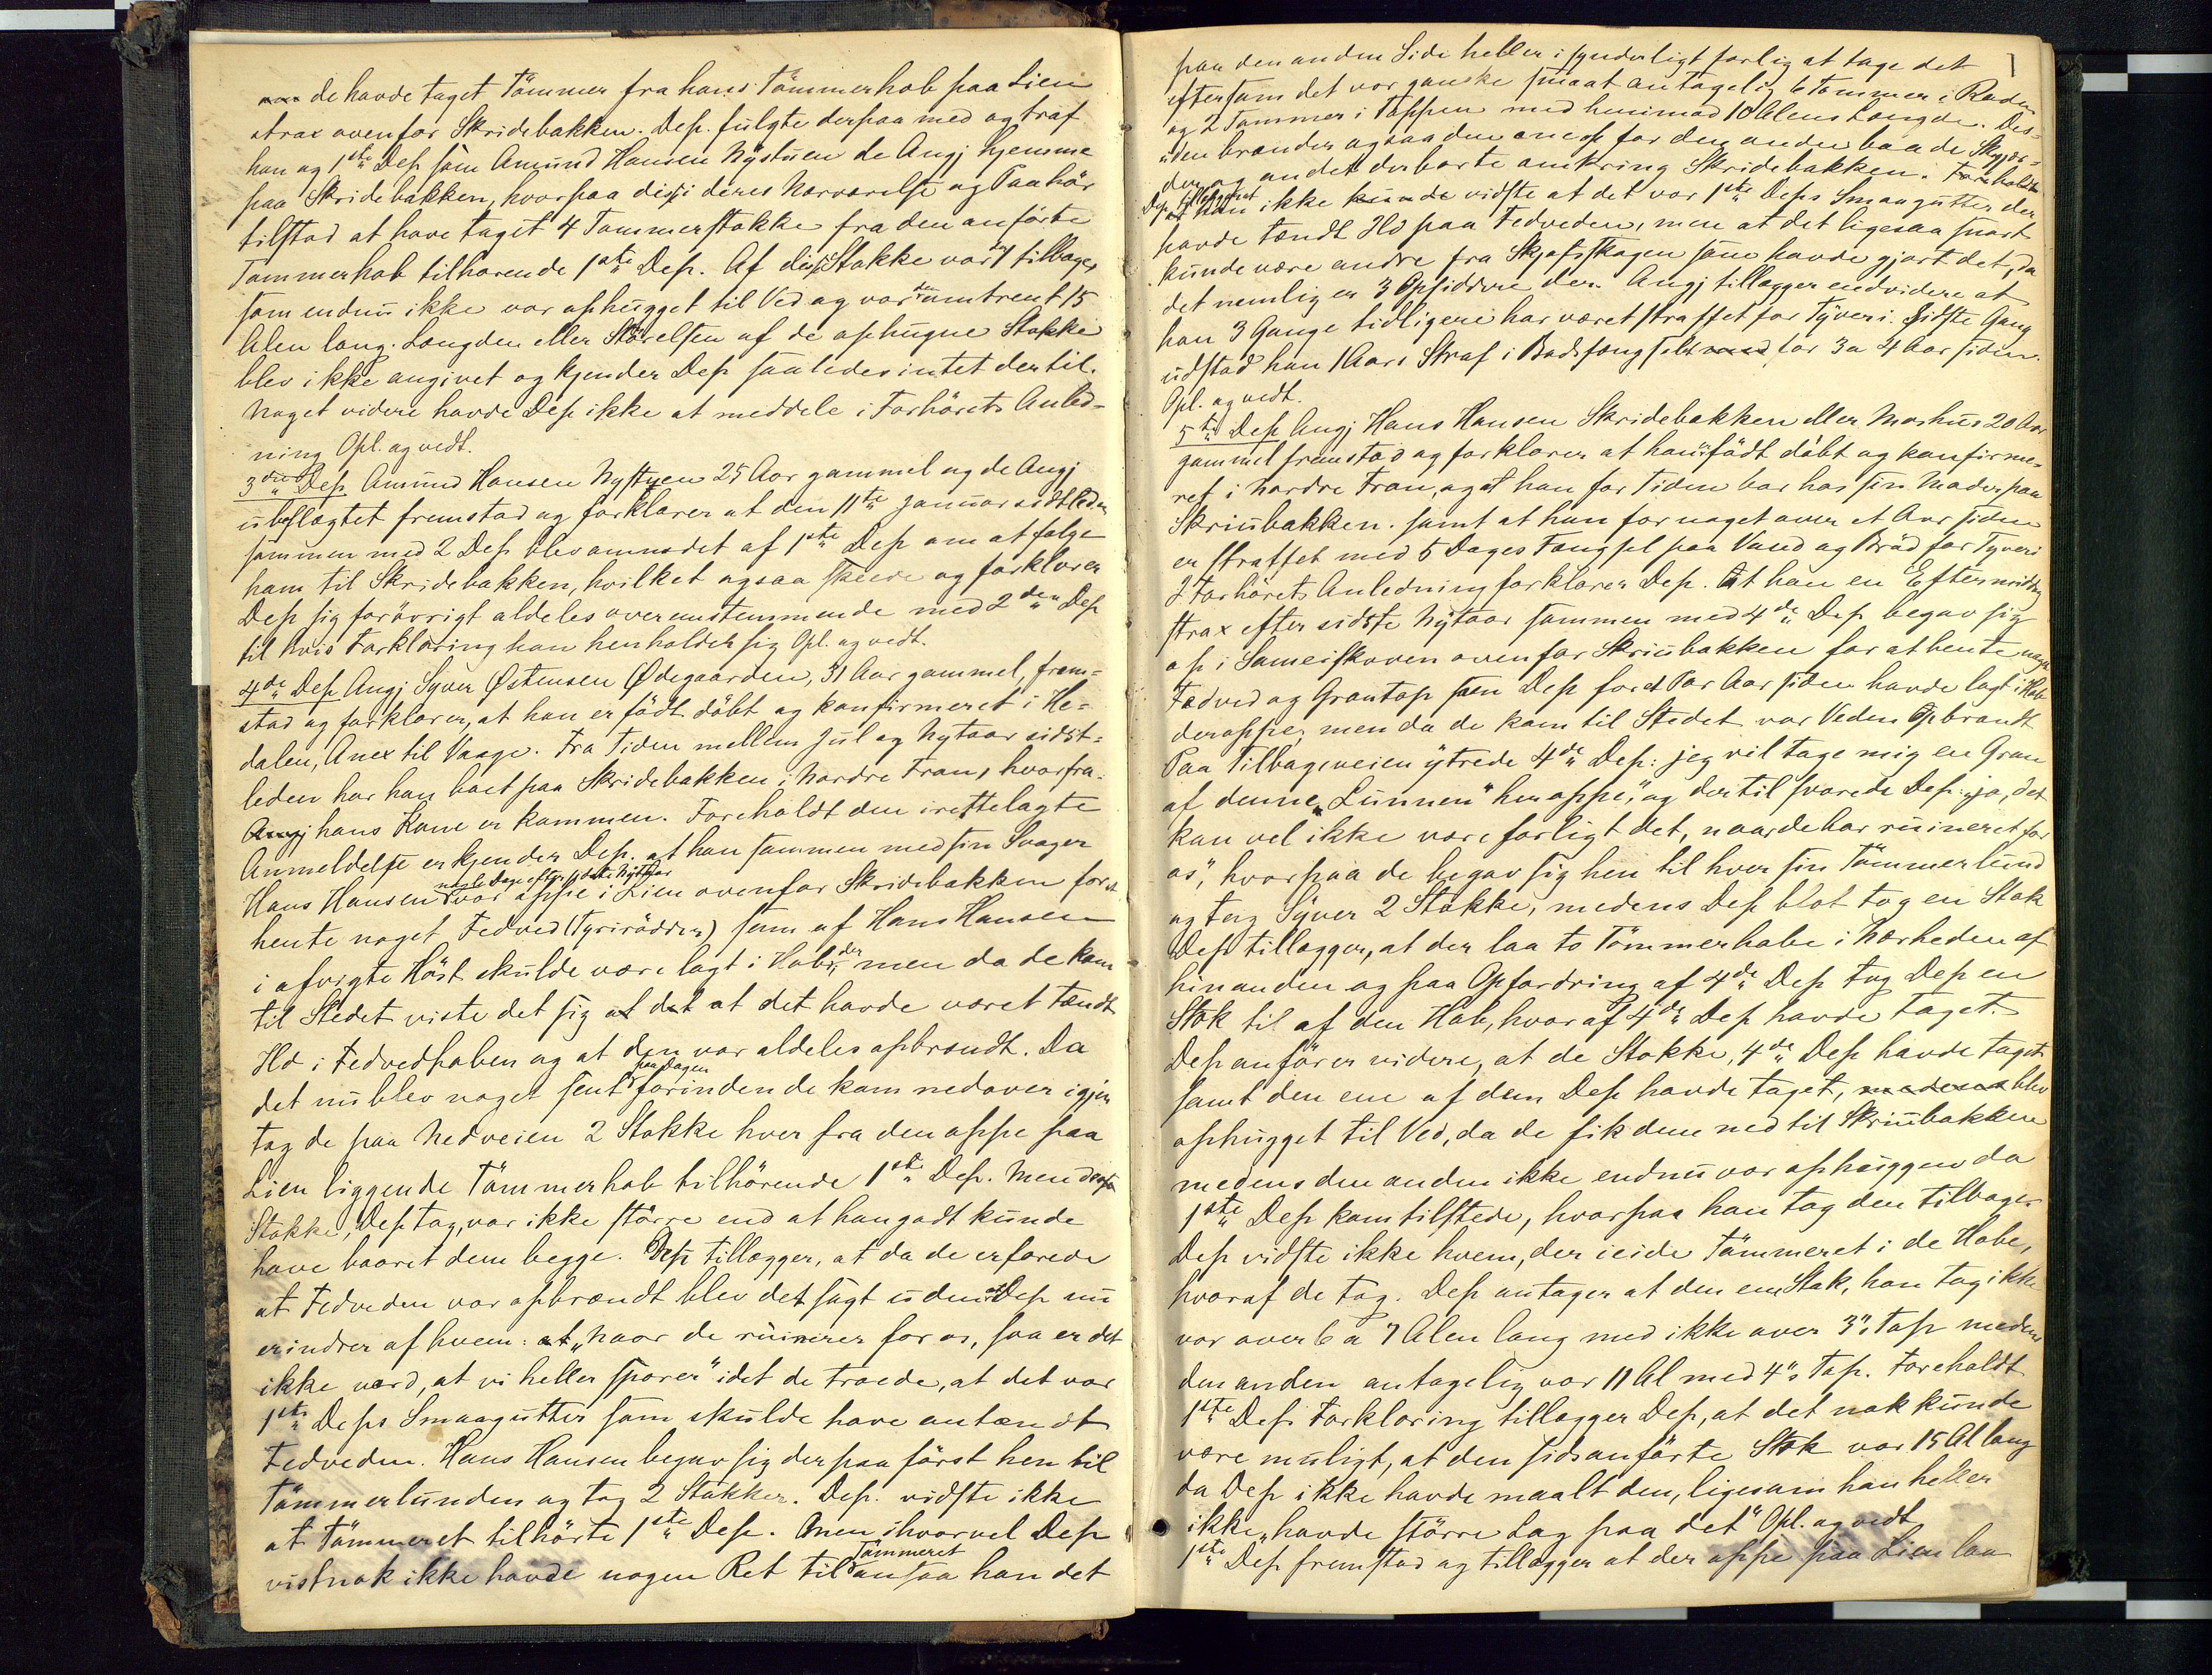 de havde taget Tömmer fra hans Tömmerhob paa Lien
strax ovenfor Skridebakken. Dep. fulgte derpaa med og traf
han og 1ste Dep som Amund Hansen Nystuen de Angj hjemme
paa Skridebakken, hvorpaa disse i deres Nærværelse og Paahör
tilstod at have taget 4 Tømmerstokke fra den anførte
Tømmerhob tilhørende 1ste Dep. Af disse Stokke var der 1 tilbage,
som endnu ikke var ophugget til Ved og var den omtrent 15
Alen lang. Længden eller Størelsen af de ophugne Stokke
blev ikke angivet og kjender Dep saaledes intet dertil.
Noget videre havde Dep ikke at meddele i Forhörets Anled-
ning Opl. og vedt.
3die Dep. Amund Hansen Nystuen 25 Aar gammel og de Angj
ubeslægtet fremstod og forklarer at den 11te Januar sidstleden
sammen med 2 Dep blev anmodet af 1ste Dep om at følge
ham til Skridebakken, hvilket ogsaa skeede og forklarer
Dep sig forövrigt aldeles overensstemmende med 2den Dep
til hvis Forklaring han henholder sig Opl. og vedt.
4de Dep Angj Syver Østensen Ødegaarden, 31 Aar gammel, frem-
stod og forklarer, at han er födt döbt og konfirmeret i He-
dalen, Anex til Vaage. Fra Tiden mellem Jul og Nytaar sidst-
leden har han boet paa Skridebakken i Nordre Fron, hvorfra
hans Kone er kommen. Foreholdt den irettelagte
Anmeldelse erkjender Dep. at han sammen med sin Svager
Hans Hansen nogle Dage efter sidste Nytaar var oppe i Lien ovenfor Skridebakken for at
hente noget Fedved (Tyrirödder) som af Hans Hansen
i afvigte Höst skulde være lagt i Hob der, men da de kom
til Stedet viste det sig at det at det havde været tændt
Ild i Fedvedhoben og at den var aldeles opbrændt. Da
det nu blev noget sent paa Dagen forinden de kom nedover igjen
tog de paa Nedveien 2 Stokke hver fra den oppe paa
Lien liggende Tömmerhob tilhörende 1ste Dep. Men disse
Stokke, Dep tog, var ikke större end at han godt kunde
have baaret dem begge. Dep tillægger, at da de erfarede
at Fedveden var opbrændt blev det sagt uden at Dep nu
erindrer af hvem: at „naar de ruinerer for os, saa er det
ikke værd, at vi heller sparer" idet de troede, at det var
1ste Deps Smaagutter som skulde have antændt
Fedveden. Hans Hansen begav sig derpaa först hen til
Tömmerlunden og tog 2 Stokker. Dep. vidste ikke
at Tömmeret tilhörte 1ste Dep. Men ihvorvel Dep
vistnok ikke havde nogen Ret til Tömmeret ansaa han det
paa den anden Side heller i synderligt farlig at tage det
eftersom det var ganske smaat antagelig 6 Tommer i Roden
og 2 Tommer i Toppen med henimod 10 Alens Længde. Des-
uden brænder ogsaa den ene op for den anden baade Skjger-
der og andet der borte omkring Skridebakken. Foreholdt
Dep tillægger at han ikke kunde vidste at det var 1ste Deps Smaagutter der
havde tændt Ild paa Fedveden, men at det ligesaa snart
kunde være andre fra Skjefsskagen som havde gjort det, da
det nemlig er 3 Opsiddere der. Angj tillægger endvidere at
han 3 Gange tidligere har været straffet for Tyveri. Sidste Gang
udstod han 1 Aars Straf i Bodsfængslet for 3 a 4 Aar siden.
Opl. og vedt.
5te Dep Angj Hans Hansen Skridebakken eller Moshus 20 Aar
gammel fremstod og forklarer at han er födt döbt og konfirme-
ret i Nordre Fron, og at han for Tiden bor hos sin Moder paa
Skriubakken. samt at han for noget over et Aar siden
er straffet med 5 Dages Fængsel paa Vand og Bröd for Tyveri
I Forhörets Anledning forklarer Dep. at han en Eftermiddag
strax efter sidste Nytaar sammen med 4de Dep begav sig
op i Sameiskoven ovenfor Skriubakken for at hente noget
Fedved og Grantop som Dep for et Par Aar siden havde lagt i Hob
deroppe, men da de kom til Stedet var Veden opbrændt
Paa Tilbageveien ytrede 4de Dep: jeg vil tage mig en Gran
af denne „Lunnen" her oppe," og dertil svarede Dep: „ja, det
kan vel ikke være farligt det, naar de har ruineret for
os", hvorpaa de begav sig hen til hver sin Tömmerlund
og tog Syver 2 Stokke, medens Dep blot tog en Stok
Dep tillægger, at der laa to Tömmerhobe i Nærheden af
hinanden og paa Opfordring af 4de Dep tog Dep en
Stok til af den Hob, hvoraf 4de Dep havde taget.
Dep anförer videre, at de Stokke, 4de Dep havde taget
samt den ene af dem Dep havde taget, blev
ophugget til Ved, da de fik dem ned til Skriubakken
medens den anden ikke endnu var ophuggen da
1ste Dep kom tilstede, hvorpaa han tog den tilbage.
Dep vidste ikke hvem, der eiede Tömmeret i de Hobe,
hvoraf de tog. Dep antager at den ene Stok, han tog ikke
var over 6 a 7 Alen lang med ikke over 3"s Top medens
den anden antagelig var 11 Al med 4"s Top. Foreholdt
1ste Deps Forklaring tillægger Dep, at det nok kunde
være muligt, at den sidsanförte Stok var 15 Al lang
da Dep ikke havde maalt den, ligesom han heller
ikke „havde större Lag paa det" Opl. og vedt
1ste Dep fremstod og tillægger at der oppe paa Lien laa